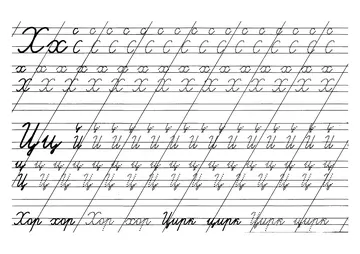 Х х с с с с с с с с с с с с с с
С С С С С С С С С С С С С С
х х х х х х х х х х х х х х х
Х Х Х Х Х Х Х Х Х Х Х Х Х
Ц ц и и и и и и и и и и и и и
ц ц ц ц ц ц ц ц ц ц ц ц ц ц ц
Ц Ц Ц Ц Ц Ц Ц Ц Ц Ц Ц Ц Ц
Хор хор Хор хор Цирк цирк Цирк цирк